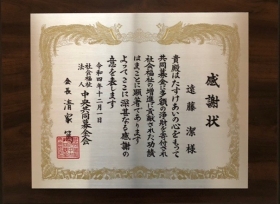 感謝状
遠藤潔様
貴殿はたすけあいの心をもって
共同募金に多額の浄財を寄付され
社会福祉の増進に貢献された功績
はまことに顕著であります
よってここに深甚なる感謝の
意を表します
令和四年十二月一日
社会福祉法人 中央共同募金会
会長 清家篤